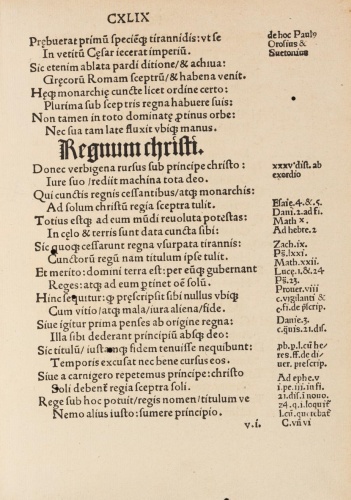 CXLIX
Prębuerat primū speciēqȝ tirannidis: vt se
In vetitū Cęsar iecerat imperiū.
Sic etenim ablata pardi ditione/& achiua:
Gręcorū Romam sceptrū/& habena venit.
Hęqȝ monarchię cuncte licet ordine certo:
Plurima sub sceptris regna habuere suis:
Non tamen in toto dominatę ptinus orbe:
Nec sua tam late fluxit vbiqȝ manus.
de hoc Paulꝰ
Orosius &
Suetonius
Regnum christi.
Donec verbigena rursus sub principe christo:
Iure suo/rediit machina tota deo.
Qui cunctis regnis cessantibus/atqȝ monarchis:
Ad solum christū regia sceptra tulit.
Totius estqȝ ad eum mūdi reuoluta potestas:
In cęlo & terris sunt data cuncta sibi:
Sic quoqȝ cessarunt regna vsurpata tirannis:
Cunctorū regū nam titulum ipse tulit.
Et merito: domini terra est: per eūqȝ gubernant
Reges: atqȝ ad eum ptinet oē solū.
Hinc sequitur: qȝ pręscripsit sibi nullus vbiqȝ
Cum vitio/atqȝ mala/iura aliena/fide.
Siue igitur prima penses ab origine regna:
Illa sibi dederant principiū absqȝ deo:
Sic titulū/iustamqȝ fidem tenuisse nequibunt:
Temporis excusat nec bene cursus eos.
Siue a carnigero repetemus principe: christo
Soli debent regia sceptra soli.
Rege sub hoc potuit/regis nomen/titulum ve
Nemo alius iusto: sumere principio.
xxxv dist. ab
exordio
Esaię.4.&.5.
Dani.2.ad fi.
Math x.
Ad hebre.2
Zach.ix.
Ps.lxxi.
Math.xxii.
Lucę.1.&.24
Ps.23.
Prouer.viii
c.vigilanti &
c.fi.de pscrip.
Danie.3.
Ad ephe.v
v.i.
C.vii vi